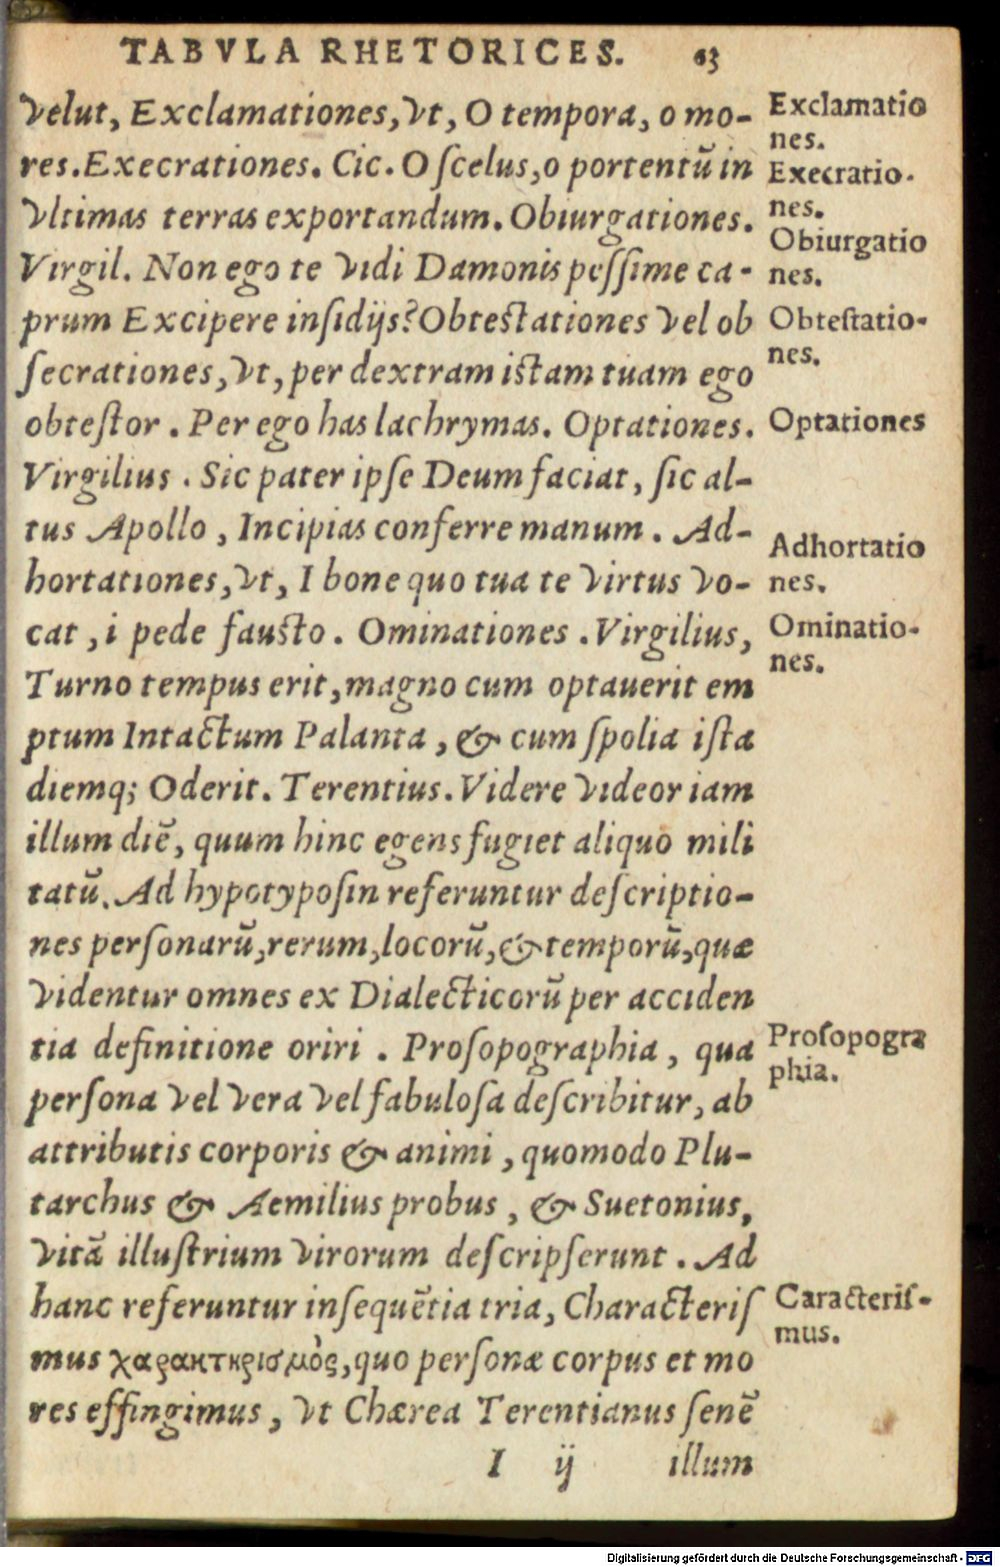 TABVLA RHETORICES. 63
velut, Exclamationes, vt, O tempora, o mo-
res. Execrationes. Cic. O ſcelus, o portentū in
vltimas terras exportandum. Obiurgationes.
Virgil. Non ego te vidi Damonis peſſime ca-
prum Excipere inſidijs? Obteſtationes vel ob
ſecrationes, vt, per dextram iſtam tuam ego
obteſtor. Per ego has lachrymas. Optationes.
Virgilius. Sic pater ipſe Deum faciat, ſic al-
tus Apollo, Incipias conferre manum. Ad-
hortationes, vt, I bone quo tua te virtus vo-
cat, i pede fauſto. Ominationes. Virgilius,
Turno tempus erit, magno cum optauerit em
ptum Intactum Palanta, & cum ſpolia iſta
diemq; Oderit. Terentius. Videre videor iam
illum diē, quum hinc egens fugiet aliquo mili
tatū. Ad hypotypoſin referuntur deſcriptio-
nes perſonarū, rerum, locorū, & temporū, quæ
videntur omnes ex Dialecticorū per acciden
tia definitione oriri. Proſopographia, qua
perſona vel vera vel fabuloſa deſcribitur, ab
attributis corporis & animi, quomodo Plu-
tarchus & Aemilius probus, & Suetonius,
vitā illuſtrium virorum deſcripſerunt. Ad
hanc referuntur inſequētia tria, Characteriſ
mus χαρακτκρισμὸς, quo perſonæ corpus et mo
res effingimus, vt Chærea Terentianus ſenē
I ij illum
Exclamatio
nes.
Execratio-
nes.
Obiurgatio
nes.
Obteſtatio-
nes.
Optationes
Adhortatio
nes.
Ominatio-
nes.
Proſopogra
phia.
Caracteriſ-
mus.
Digitalisierung gefördert durch die Deutsche Forschungsgemeinschaft - DFG